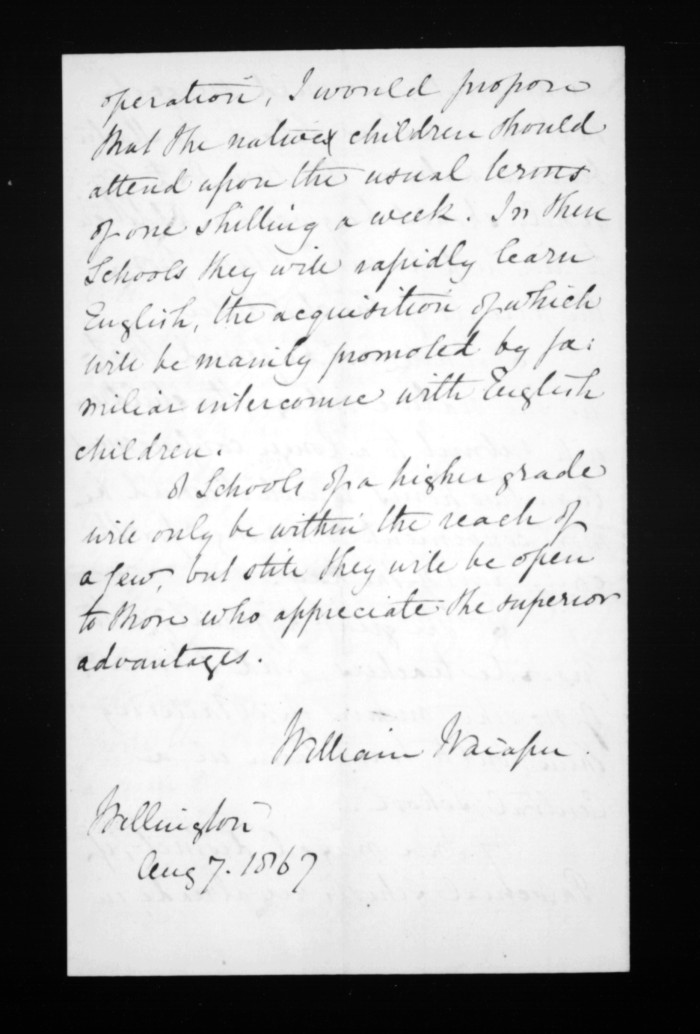 operation, I would propose
that the native children should
attend upon the usual terms
of one shilling a week. In these
Schools they will rapidly learn
English, the acquisition of which
will be mainly promoted by fa:
miliar intercourse with English
children.
Schools of a higher grade
will only be within the reach of
a few, but still they will be open
to those who appreciate the superior
advantages.
William Waiapu.
Wellington
Aug 7. 1867